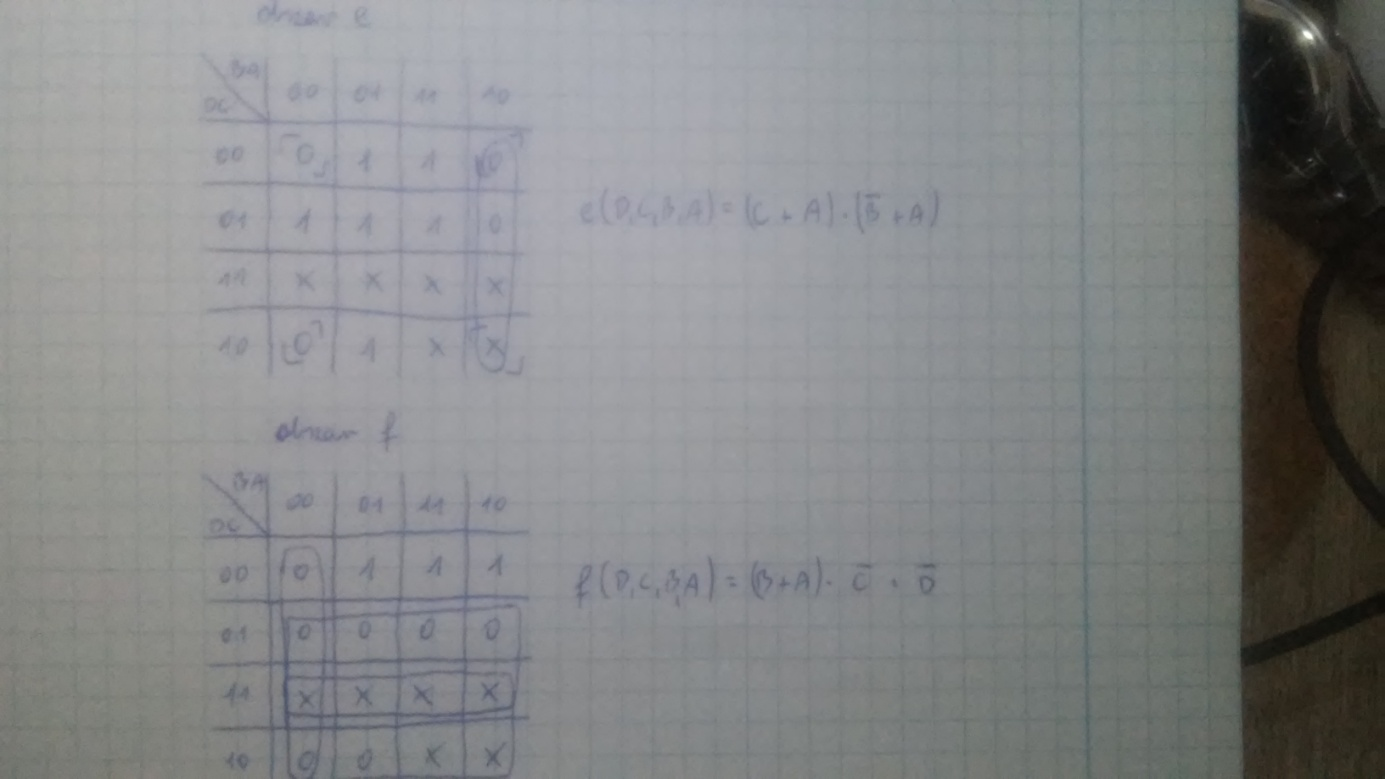 BA
DC 00 01 11 10
00 0 1 1 0
01 1 1 1 0
11 x x x x
10 0 1 x x
e(D,C,B,A) = (C + A) · (B̅ + A)
f
BA
DC 00 01 11 10
00 0 1 1 1
01 0 0 0 0
11 x x x x
10 0 0 x x
f(D,C,B,A) = (B+A) · C̅ · D̅